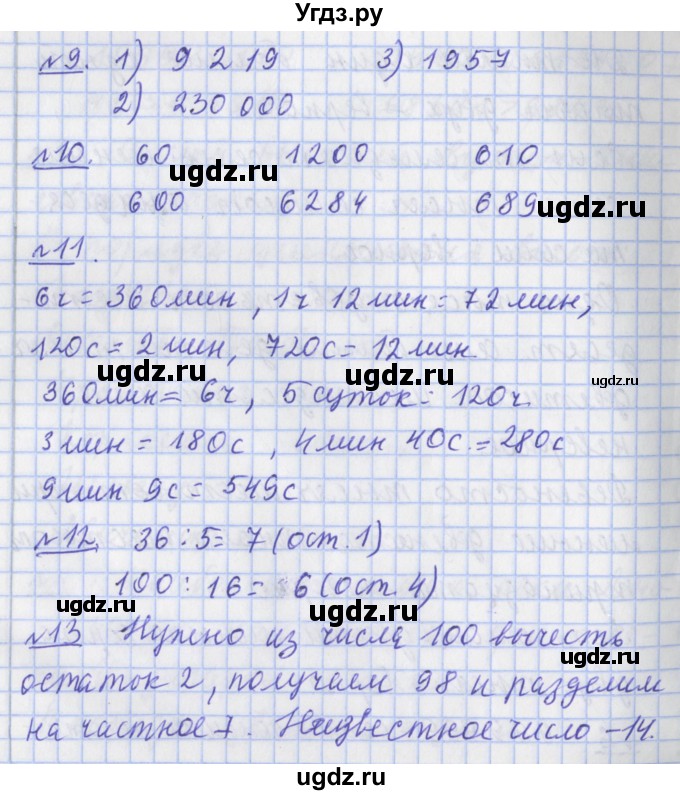 Угдз.ру
№9. 1) 9 219 3) 1957
2) 230 000
№10. 60 1200 610
ugdz.ru ugdz.ru
600 6284 689
ugdz.ru
№11.
6ч = 360мин, 1ч 12мин = 72мин,
120с = 2мин, 720с = 12мин.
ugdz.ru ugdz.ru
360мин = 6ч, 5 суток = 120ч.
ugdz.ru
3мин = 180с, 4мин 40с. = 280с
9мин 9с = 549с
ugdz.ru
№12 36 : 5 = 7 (ост. 1)
100 : 16 = 6 (ост. 4)
ugdz.ru ugdz.ru
№13 Нужно из числа 100 вычесть
ugdz.ru
остаток 2, получаем 98 и разделим
ugdz.ru
на частное 7. Неизвестное число – 14.
ugdz.ru